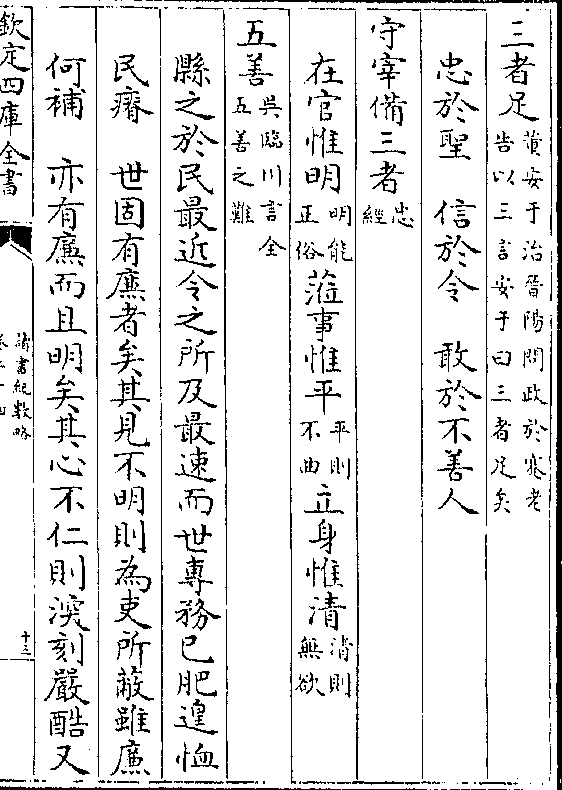 三者足董安于治晉陽問政於蹇老告以三言安于曰三者足矣
忠於聖　信於令　敢於不善人
守宰備三者忠經
在官惟明明能正俗蒞事惟平平則不曲立身惟清清則無欲
五善吳臨川言全五善之難
縣之於民最近令之所及最速而世專務己肥遑恤
民瘠　世固有廉者矣其見不明則為吏所蔽雖廉
何補　亦有廉而且明矣其心不仁則深刻嚴酷又
欽定四庫全書
讀書紀數略
十三